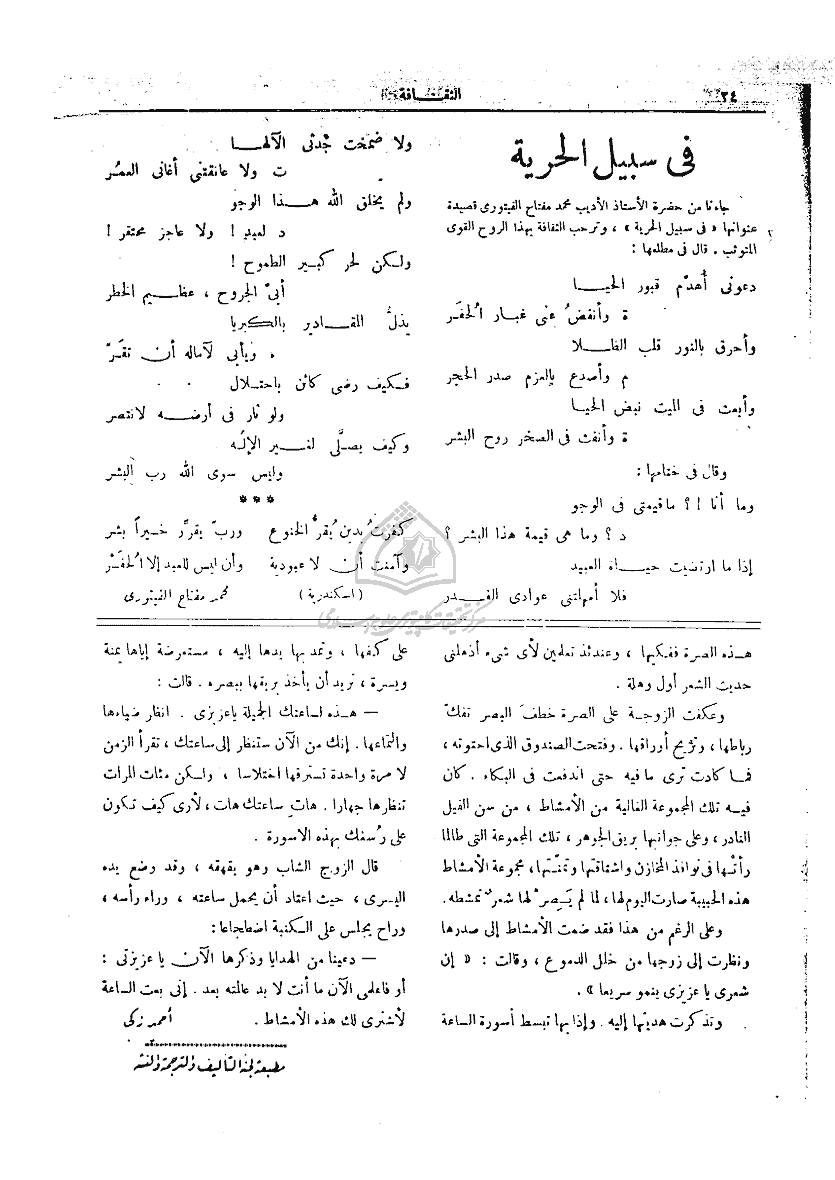 ٣٤
الثقافة
في سبيل الحرية
جاءنا من حضرة الأستاذ الأديب محمد مفتاح الفيتوري قصيدة
عنوانها « في سبيل الحرية » ، وترحب الثقافة بهذا الروح القوى
المتوثب . قال في مطلعها :
دعونى أهدّم قبور الحيـا
ة وأنفضُ عنى غبار الحُفَر
وأحرق بالنور قلب الظـلا
م وأصدع بالعزم صدر الحجر
وأبعث في الميت نبض الحيـا
ة وأنفث في الصخر روح البشر
وقال في ختامها :
وما أنا ؟! ما قيمتى في الوجو
د ؟ وما هى قيمة هذا البشر ؟
إذا ما ارتضيت حيـاة العبيد
فلا أمهلتنى عوادى القـدر
ولا ضمخت جُدثى الآلهـا
ت ولا عانقتنى أغانى العمُر
ولم يخلق الله هـذا الوجو
د لعبد ! ولا عاجز محتقر !
ولكن لحر كبير الطموح !
أبىّ الجروح ، عظيم الخطر
يذلّ المقادير بالكبريا
ء ويأبى لآماله أن تقَرّ
فكيف رضى كائن باحتلال
ولو ثار في أرضه لانتصر
وكيف يصلَّى لغير الإله
وليس سوى الله رب البشر
***
كفرتُ بدين يُقرّ الخنوع ورب يقرر خسراً بشر
وآمنت أن لا عبودية وأن ليس للعبد إلا الحفَرْ
( اسكندرية ) محمد مفتاح الفيتورى
هذه الصرة ففكيها ، وعندئذ تعلمين لأى شىء أذهلنى
حديث الشعر أول وهلة .
وعكفت الزوجة على الصرة خطفَ البصر تفكّ
رباطها ، وتزيح أوراقها . وفتحت الصندوق الذى احتوته ،
فما كادت ترى ما فيه حتى اندفعت في البكاء . كان
فيه تلك المجموعة الغالية من الأمشاط ، من سن الفيل
النادر ، وعلى جوانبها بريق الجوهر ، تلك المجموعة التى طالما
رأتها في نوافذ المخازن واشتاقتها وتمنّتها ، مجموعة الأمشاط
هذه الحبيبة صارت اليوم لها ، لما لم يَصِر لها شعرٌ تمشطه .
وعلى الرغم من هذا فقد ضمت الأمشاط إلى صدرها
ونظرت إلى زوجها من خلل الدموع ، وقالت : « إن
شعرى يا عزيزى ينمو سريعا » .
وتذكرت هديتها إليه . وإذا بها تبسط أسورة الساعة
على كفها ، وتمد بها يدها إليه ، مستعرضة إياها يمنة
ويسرة ، تريد أن يأخذ بريقها ببصره . قالت :
— هذه لساعتك الجميلة يا عزيزى . انظر ضياءها
والتماعها . إنك من الآن ستنظر إلى ساعتك ، تقرأ الزمن
لا مرة واحدة تسترقها اختلاسا ، ولكن مئات المرات
تنظرها جهارا . هات ساعتك هات ، لأرى كيف تكون
على رُسغك بهذه الاسورة .
قال الزوج الشاب وهو يقهقه ، وقد وضع يده
اليسرى ، حيث اعتاد أن يحمل ساعته ، وراء رأسه ،
وراح يجلس على الكنبة اضطجاعا :
— دعينا من الهدايا وذكرها الآن يا عزيزتى :
أو فاعلمى الآن ما أنت لا بد عالمته بعد . إنى بعت الساعة
لأشترى لك هذه الأمشاط . أحمد زكى
مطبعة لجنة التأليف والترجمة والنشر